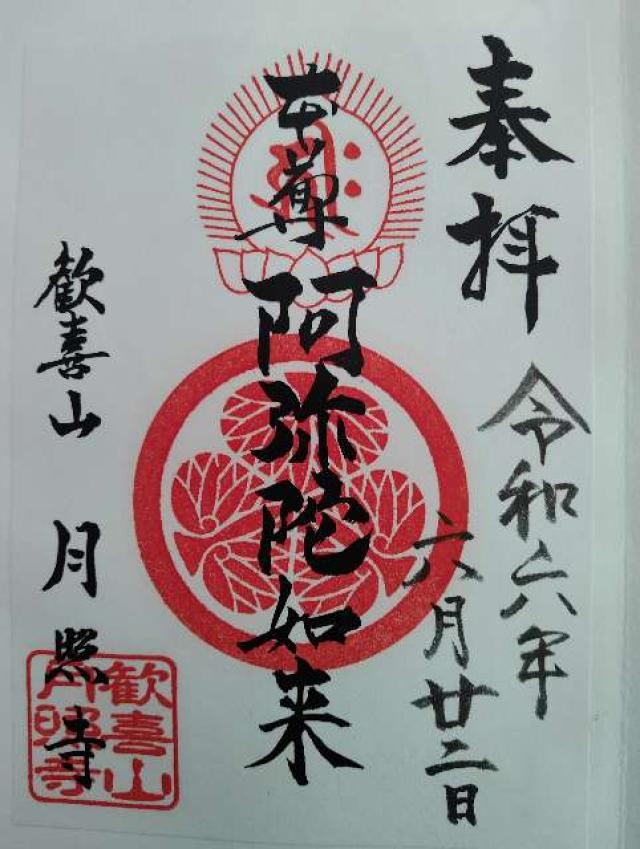 奉拝
令和六年
六月廿二日
本尊 阿弥陀如来
歓喜山 月照寺
歓喜山
月照寺